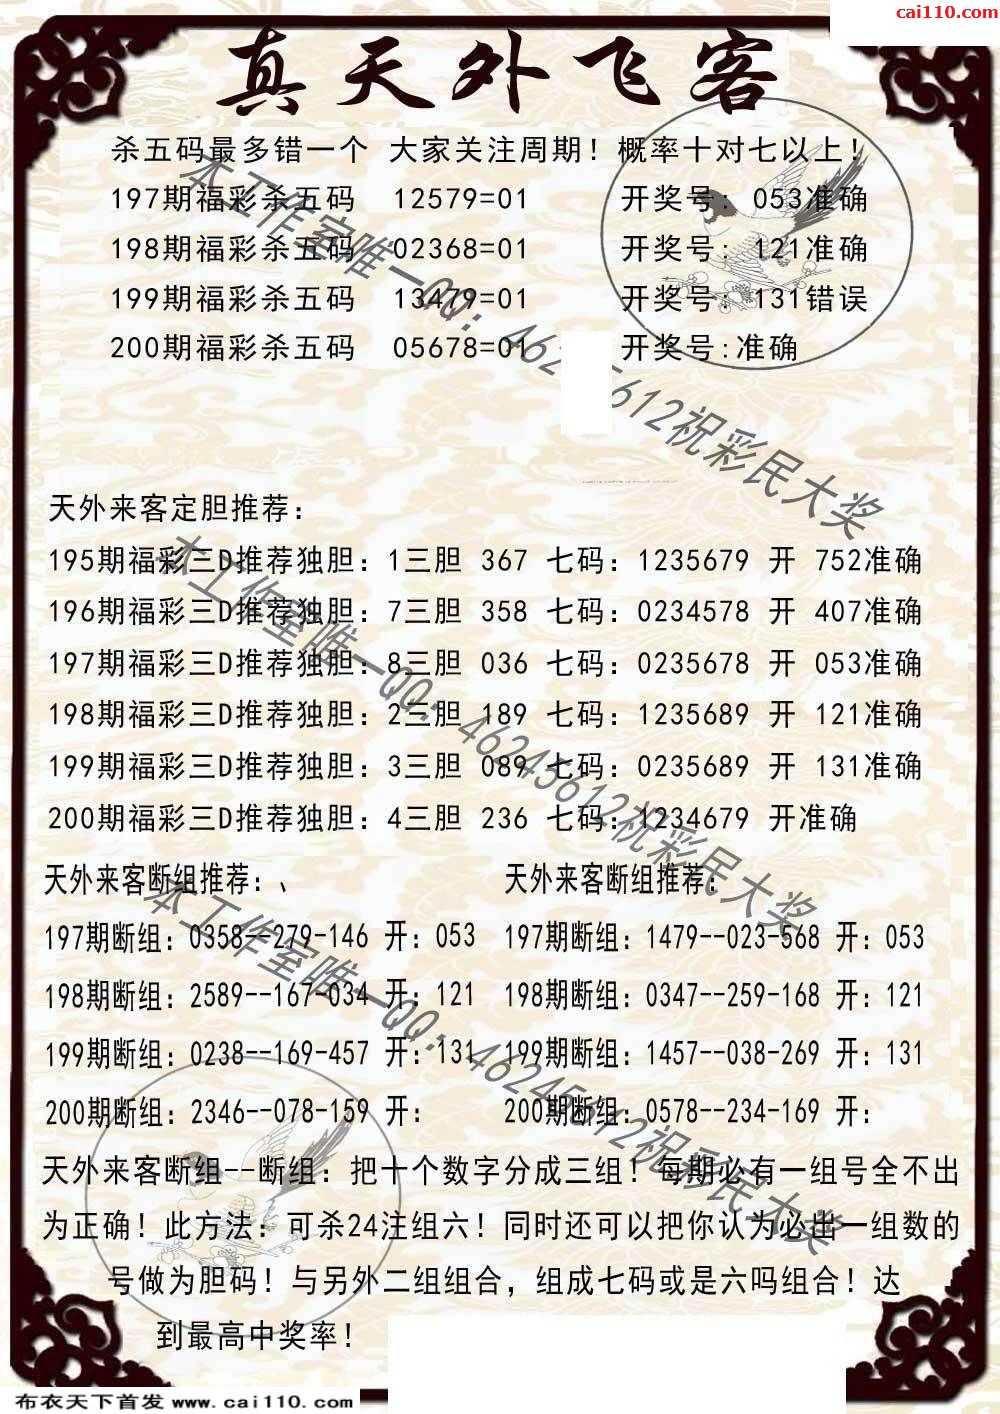 cai110.com
真天外飞客
杀五码最多错一个 大家关注周期！概率十对七以上！
197期福彩杀五码 12579=01 开奖号：053准确
198期福彩杀五码 02368=01 开奖号：121准确
199期福彩杀五码 13479=01 开奖号：131错误
200期福彩杀五码 05678=01 开奖号:准确
本工作室唯一QQ：46245612祝彩民大奖
天外来客定胆推荐：
195期福彩三D推荐独胆：1三胆 367 七码：1235679 开 752准确
196期福彩三D推荐独胆：7三胆 358 七码：0234578 开 407准确
197期福彩三D推荐独胆：8三胆 036 七码：0235678 开 053准确
198期福彩三D推荐独胆：2三胆 189 七码：1235689 开 121准确
199期福彩三D推荐独胆：3三胆 089 七码：0235689 开 131准确
200期福彩三D推荐独胆：4三胆 236 七码：1234679 开准确
本工作室唯一QQ：46245612祝彩民大奖
天外来客断组推荐：、 天外来客断组推荐：
197期断组：0358--279-146 开：053 197期断组：1479--023-568 开：053
198期断组：2589--167-034 开：121 198期断组：0347--259-168 开：121
199期断组：0238--169-457 开：131 199期断组：1457--038-269 开：131
200期断组：2346--078-159 开： 200期断组：0578--234-169 开：
本工作室唯一QQ：46245612祝彩民大奖
天外来客断组--断组：把十个数字分成三组！每期必有一组号全不出
为正确！此方法：可杀24注组六！同时还可以把你认为必出一组数的
号做为胆码！与另外二组组合，组成七码或是六吗组合！达
到最高中奖率！
布衣天下首发 www.cai110.com